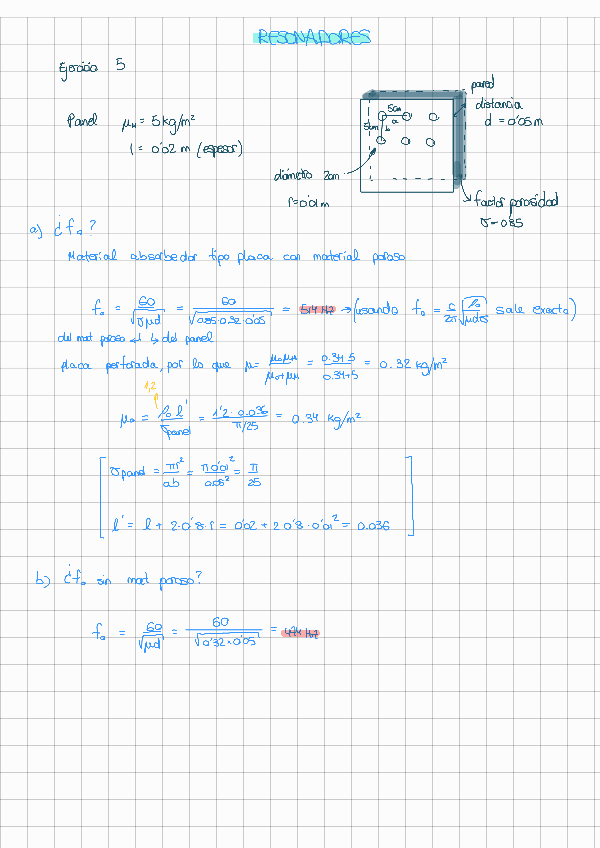 RESONADORES
Ejercicio 5
Panel μM = 5 kg/m²
l = 0'02 m (espesor)
pared
distancia
d = 0'05 m
5cm
a
5cm
b
diámetro 2cm
r=0'01m
factor porosidad
σ = 0'85
a) ¿f₀?
Material absorbedor tipo placa con material poroso
f₀ = 60/√(σμd) = 60/√(0'85·0.32·0'05) = 514 Hz → (usando f₀ = c/2π √(ρ₀/μdσ) sale exacto)
del mat poroso ↲ ↳ del panel
placa perforada, por lo que μ = μ₀μM/(μ₀+μM) = 0.34·5/(0.34+5) = 0.32 kg/m²
1,2
μ₀ = ρ₀ l'/σpanel = 1'2·0.036/(π/25) = 0.34 kg/m²
σpanel = πr²/ab = π0'01²/0.05² = π/25
l' = l + 2·0'8·r = 0'02 + 2·0'8·0'01² = 0.036
b) ¿f₀ sin mat poroso?
f₀ = 60/√(μd) = 60/√(0'32·0'05) = 474 Hz